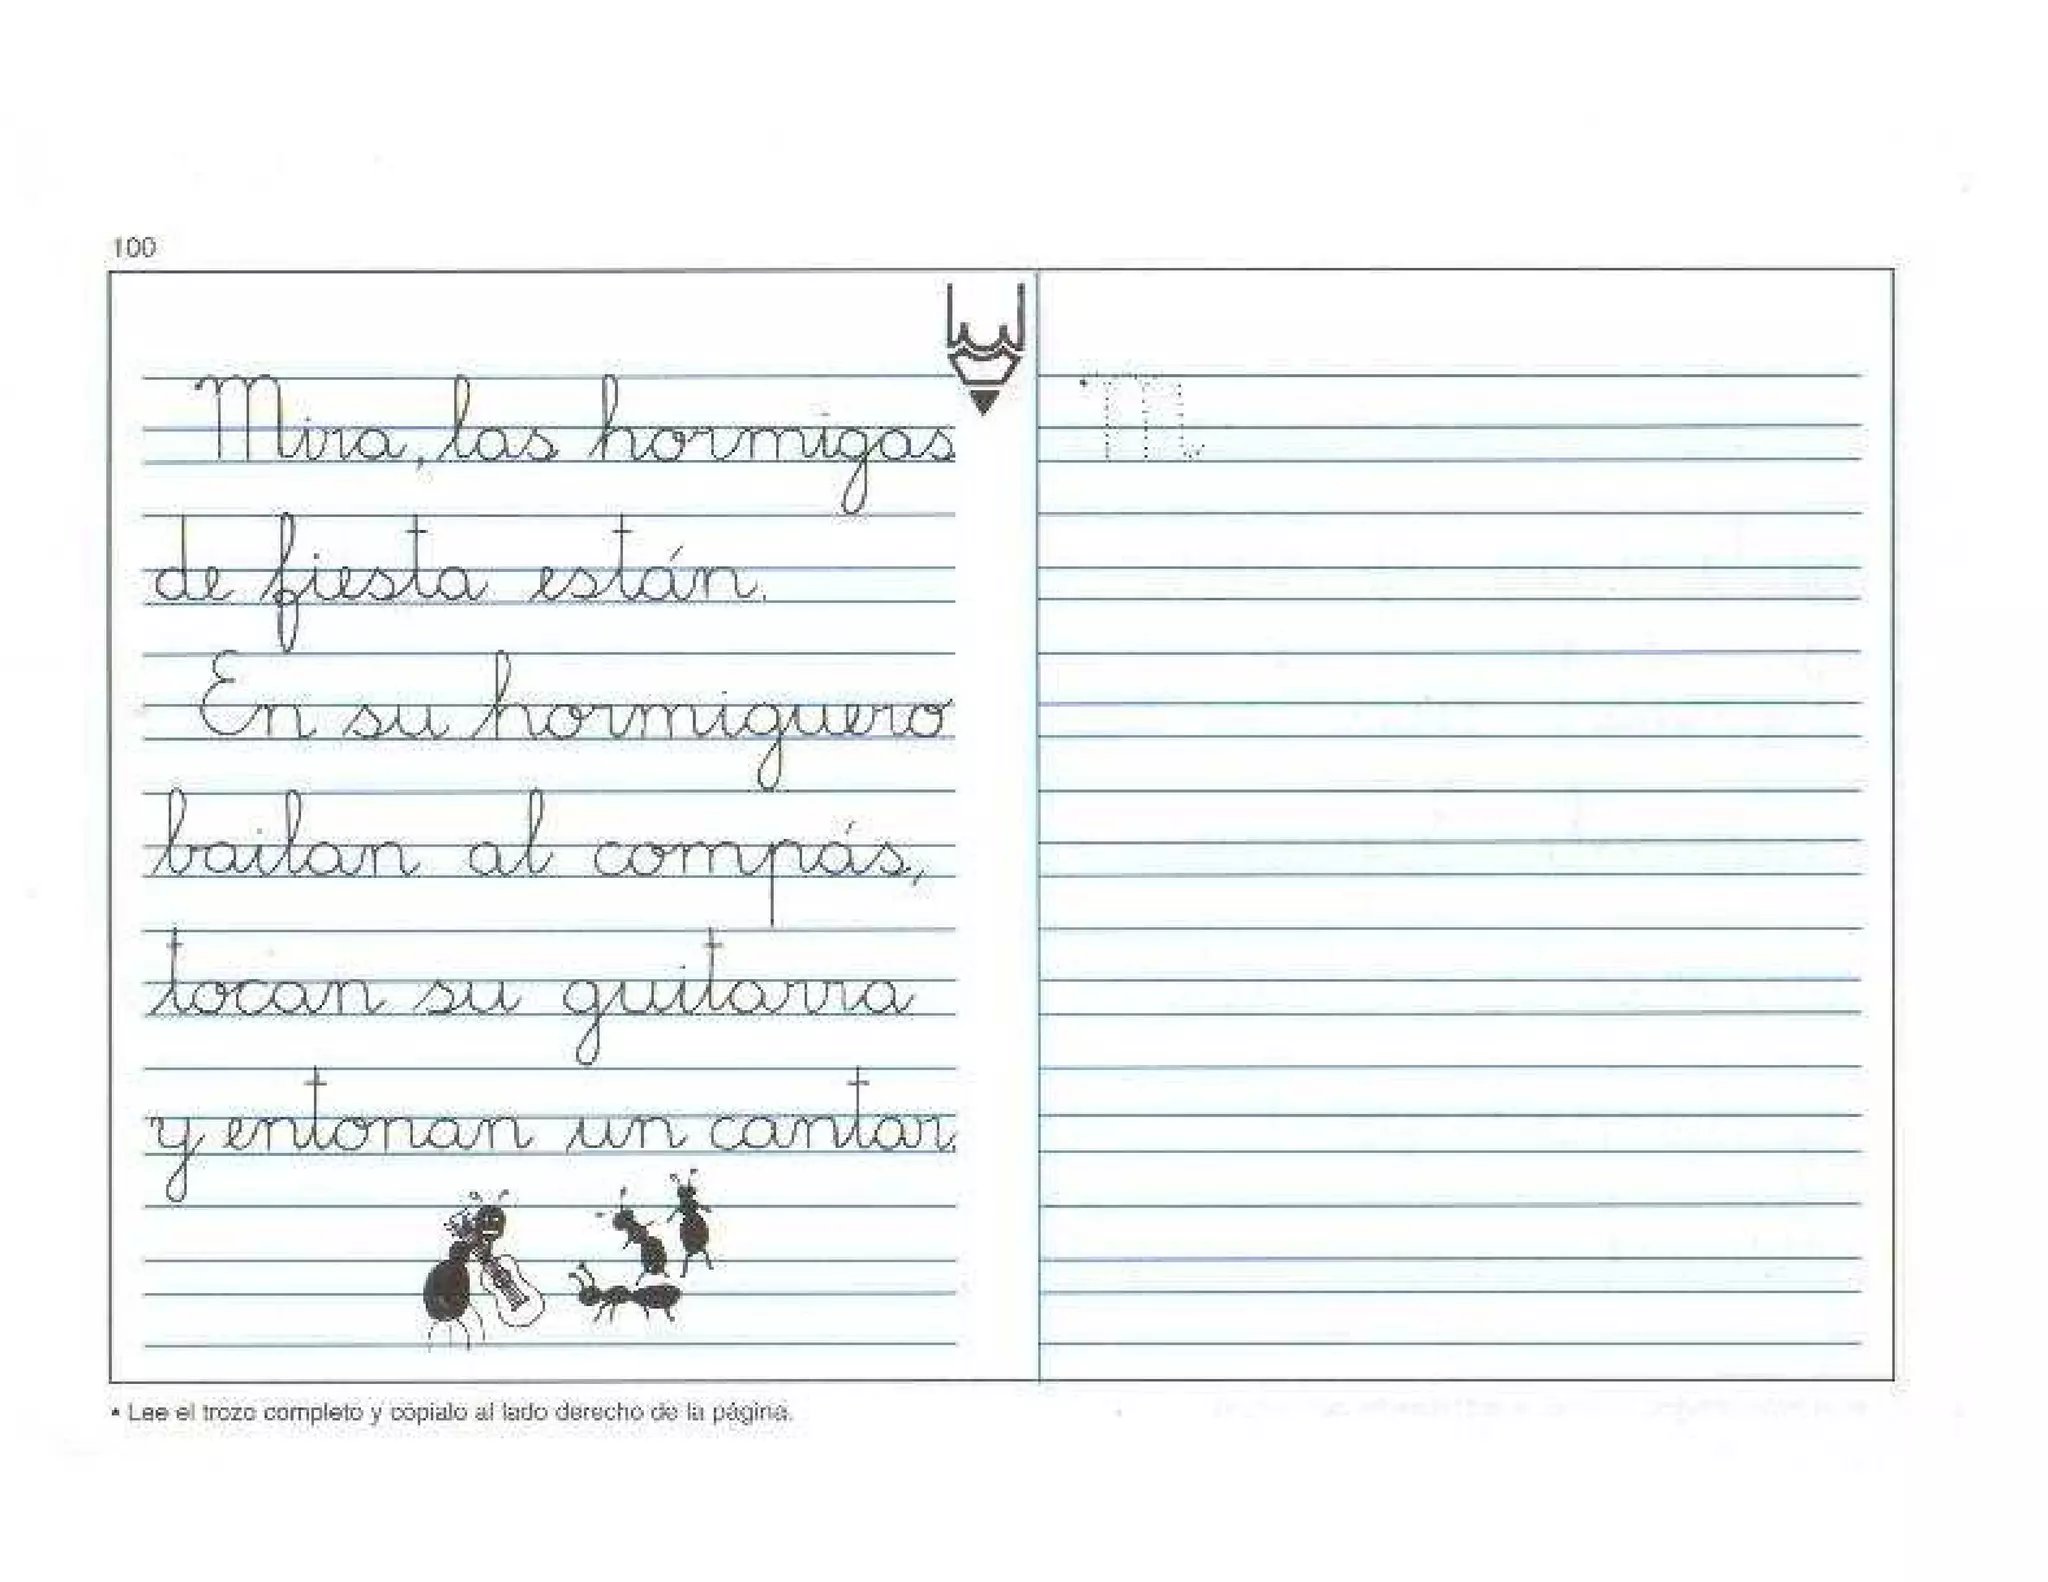 100
Mira, las hormigas
de fiesta están.
En su hormiguero
bailan al compás,
tocan su guitarra
y entonan un cantar.
M
• Lee el trozo completo y cópialo al lado derecho de la página.